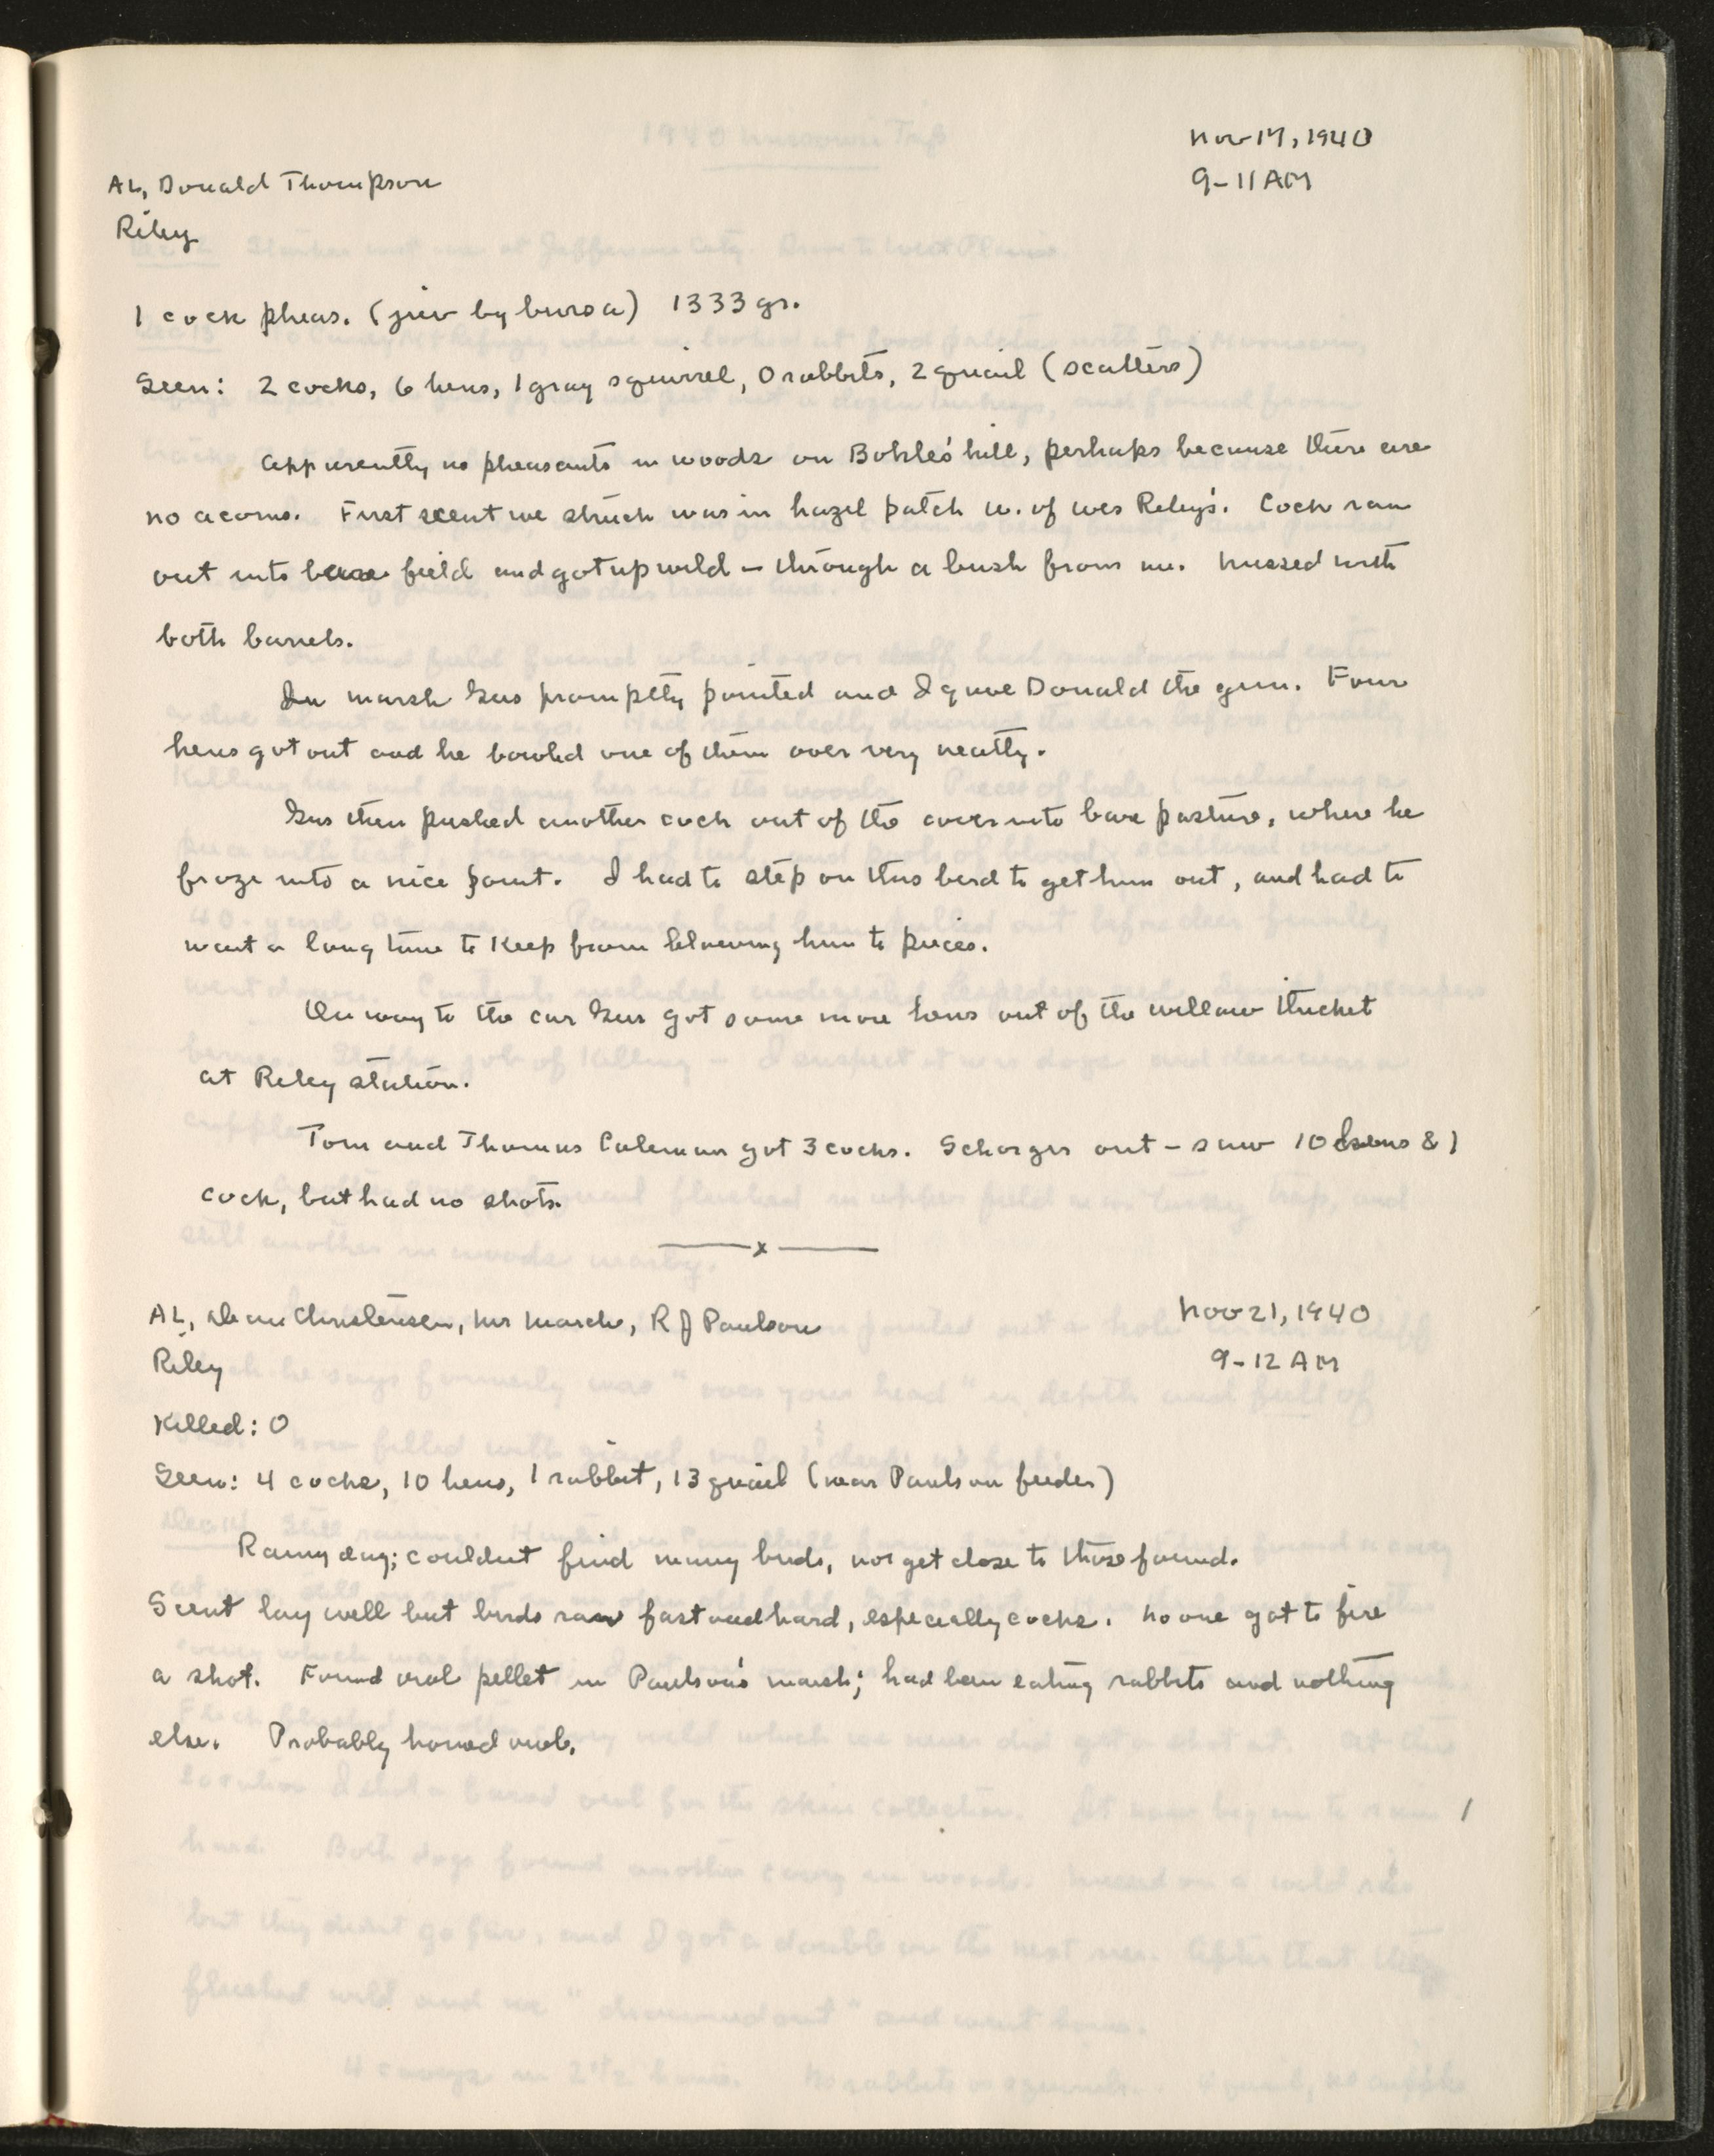 Nov 17, 1940
9-11 AM
AL, Donald Thompson
Riley
1 cock pheas. (juv by bursa) 1333 gr.
Seen: 2 cocks, 6 hens, 1 gray squirrel, 0 rabbits, 2 quail (scatters)
Apparently no pheasants in woods on Bohle's hill, perhaps because there are
no acorns. First scent we struck was in hazel patch w. of Wes Riley's. Cock ran
out into bare field and got up wild - through a bush from me. Missed with
both barrels.
In marsh Gus promptly pointed and I gave Donald the gun. Four
hens got out and he bowled one of them over very neatly.
Gus then pushed another cock out of the cover into bare pasture, where he
froze into a nice point. I had to step on this bird to get him out, and had to
wait a long time to keep from blowing him to pieces.
On way to the car Gus got some more hens out of the willow thicket
at Riley station.
Tom and Thomas Coleman got 3 cocks. Schorger out - saw 10 hens & 1
cock, but had no shots.
x
AL, Dean Christensen, Mr March, R J Paulson
Nov 21, 1940
Riley
9-12 AM
Killed: 0
Seen: 4 cocks, 10 hens, 1 rabbit, 13 quail (near Paulson feeder)
Rainy day; couldn't find many birds, nor get close to those found.
Scent lay well but birds ran fast and hard, especially cocks. No one got to fire
a shot. Found owl pellet in Paulson's marsh; had been eating rabbits and nothing
else. Probably horned owl.